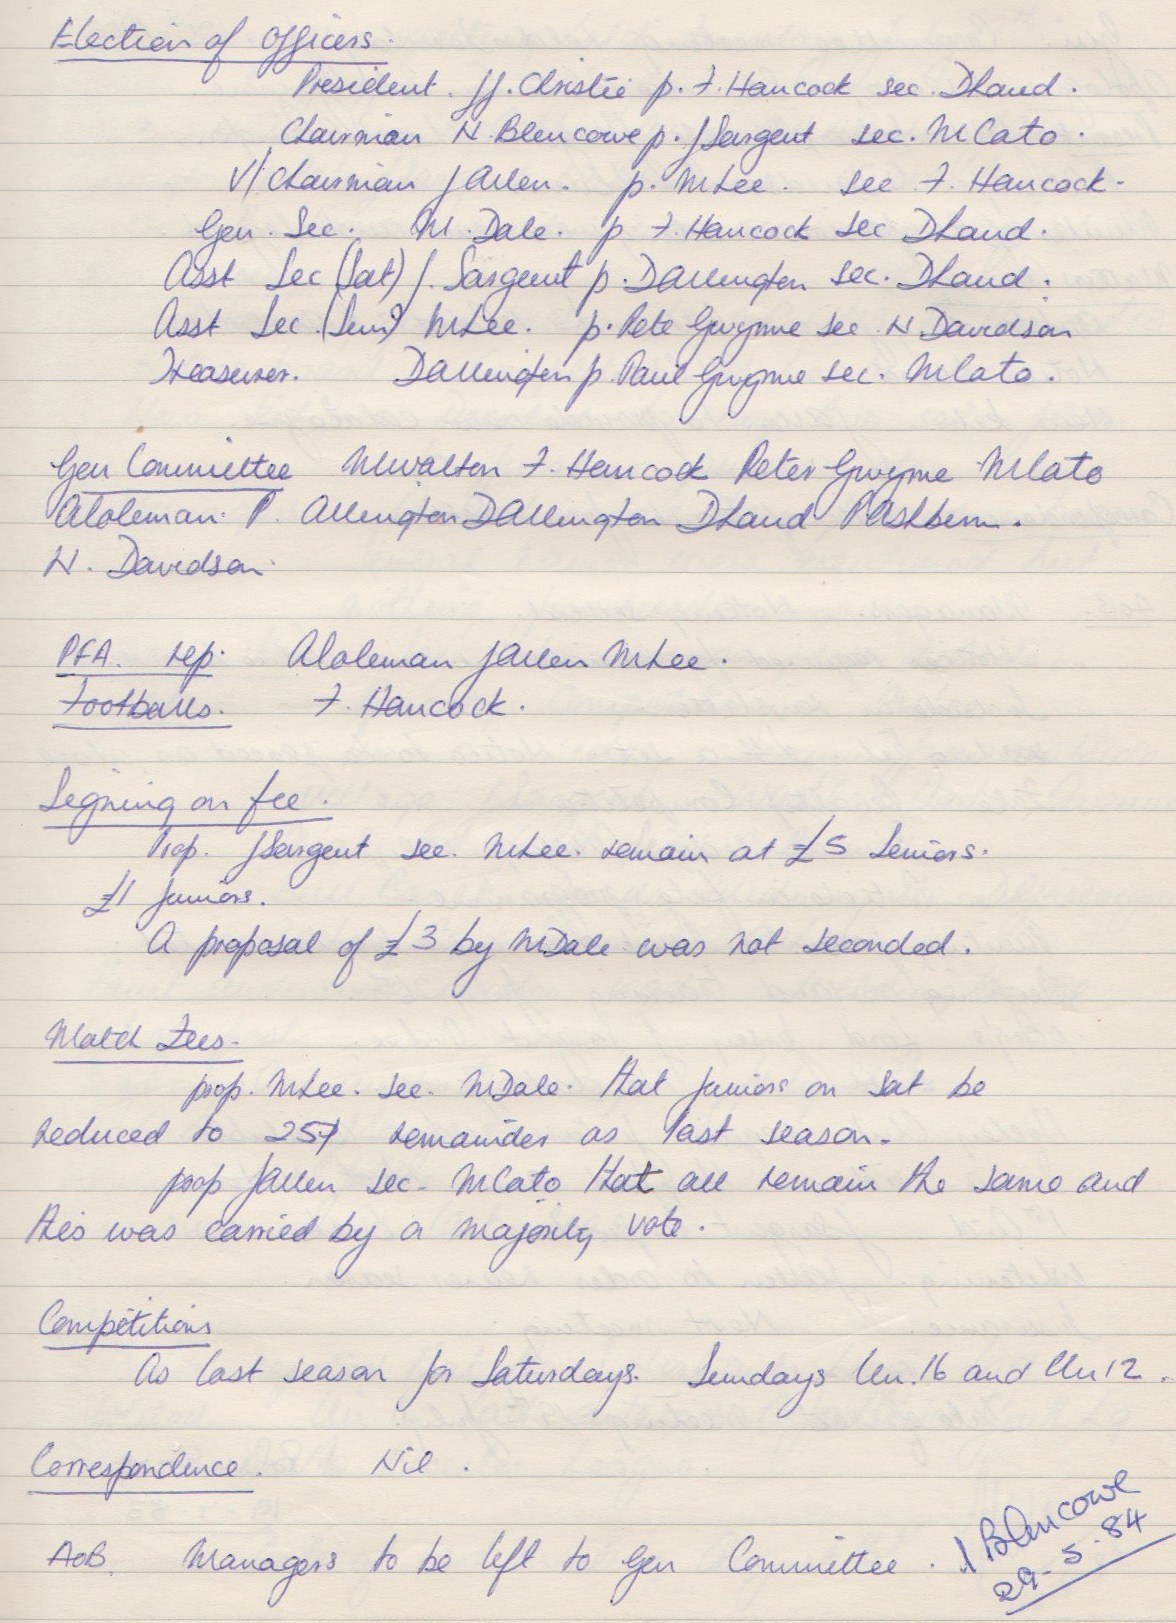 Election of Officers.
President. JJ. Christie p. F. Hancock sec. D Laud.
Chairman N. Blencowe p. J Sargent sec. M Cato.
V/Chairman J Allen. p. M Lee. sec F. Hancock.
Gen. Sec. M. Dale. p F. Hancock sec D Laud.
Asst Sec (Sat) J. Sargent p. D Allington sec. D Laud.
Asst Sec. (Sun) M Lee. p. Pete Gwynne sec. N. Davidson
Treasurer. D Allington p. Paul Gwynne sec. M Cato.
Gen Committee M Walton F. Hancock Peter Gwynne M Cato
A Coleman. P. Allington D Allington D Laud P Ashbern.
N. Davidson.
PFA. rep. A Coleman J Allen M Lee.
Footballs. F. Hancock.
Signing on fee.
Prop. J Sargent sec. M Lee. remain at £5 Seniors.
£1 Juniors.
A proposal of £3 by M Dale was not seconded.
Match Fees.
prop. M Lee. sec. M Dale. that juniors on Sat be
reduced to 25p remainder as last season.
prop J Allen sec. M Cato that all remain the same and
this was carried by a majority vote.
Competitions
As last season for Saturdays. Sundays Un. 16 and Un 12.
Correspondence. Nil.
AOB. Managers to be left to Gen Committee.
N Blencowe
29.5.84